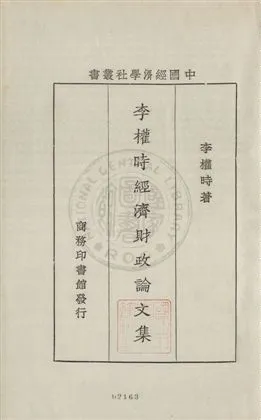 中國經濟學社叢書
李權時著
李權時經濟財政論文集
商務印書館發行
NATIONAL CENTRAL LIBRARY
62163